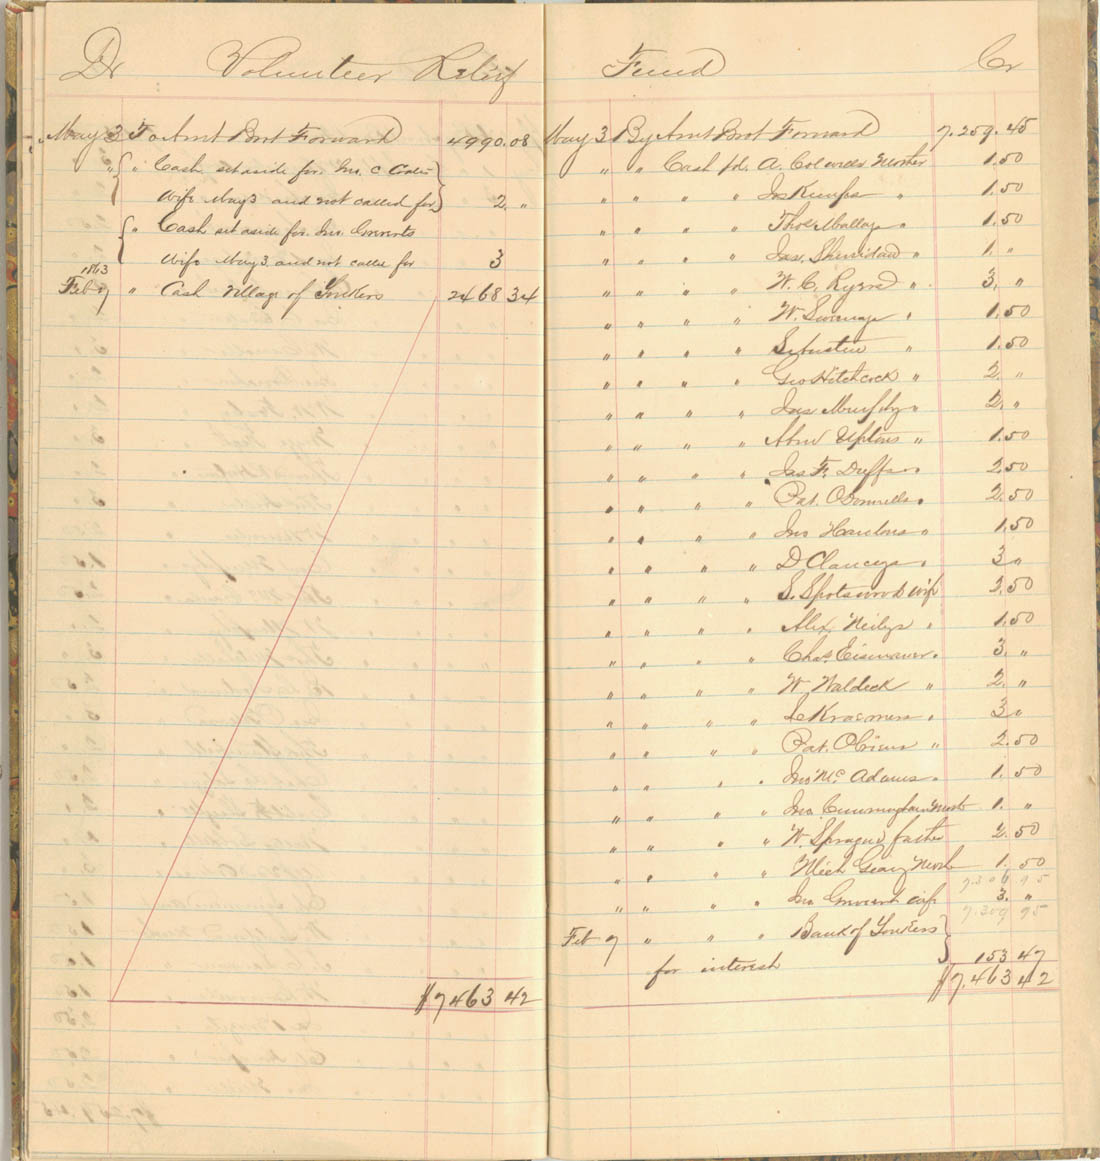 Dr Volunteer Relief
May 3 To Amt Brot Forward 4990.08
" " Cash set aside for Jno. C
Wife May 3 and not called for 2. "
" Cash set aside for Jno. Grovents
Wife May 3. and not called for 3
1863
Feb 7 " Cash Village of Yonkers 2468 34
$7463 42
Fund Cr
May 3 By Amt Brot Forward 7.259.45
" " Cash pd. A. Colwells Mother 1.50
" " " " Jos Kemps " 1.50
" " " " Thos Malloys " 1.50
" " " " Jas. Sherridan " 1 "
" " " " W. C. " 3. "
" " " " W. " 1.50
" " " " " 1.50
" " " " Geo Hitchcock " 2. "
" " " " Jas Murphy " 2. "
" " " " Abm Uptons " 1.50
" " " " Jas F. Duffs " 2.50
" " " " Pat. O Donnells " 2.50
" " " " Jno Hanlons " 1.50
" " " " D Clanceys " 3 "
" " " " S. Spotswood wife 2.50
" " " " Alex Neilys " 1.50
" " " " Chas. Eisenauer " 3. "
" " " " W. Waldeck " 2. "
" " " " Kraemers " 3 "
" " " " Pat. OBriens " 2.50
" " " " Jno Mc Adams " 1.50
" " " " Jno. Cunningham Moth 1. "
" " " " W. Sprague father 2.50
" " " " Mich Geary Moth 1.50
7306 95
" " " " Jno Grovent wife 3. "
7.309 95
Feb 7 " " " Bank of Yonkers
for interest 153 47
$7.463 42